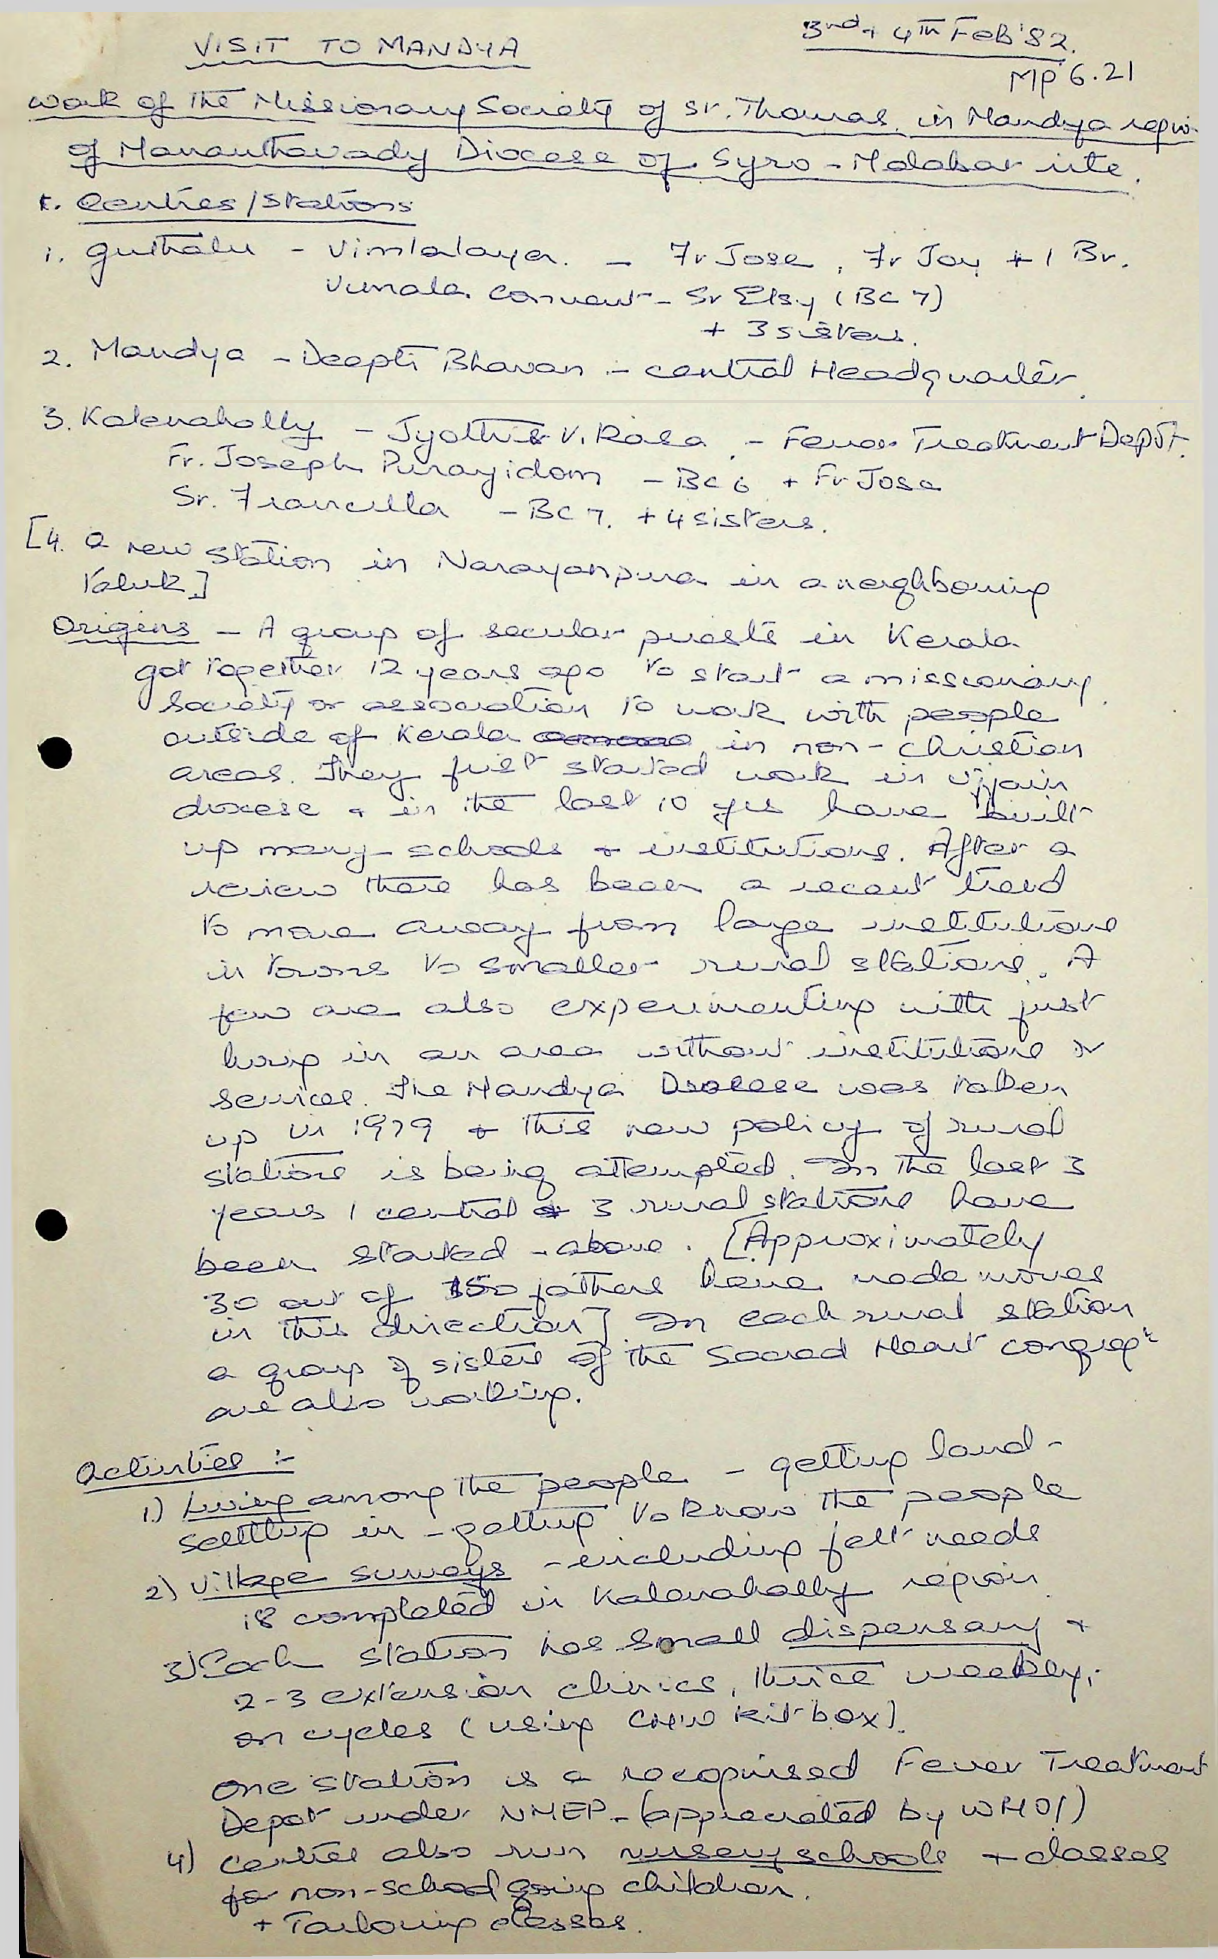 VISIT TO MANDYA
3rd + 4th Feb '82.
MP 6.21
Work of the Missionary Society of St. Thomas in Mandya region
of Mananthavady Diocese of Syro-Malabar rite.
1. Centres/Stations
1. Guthalu - Vimlalaya. - Fr Jose, Fr Joy + 1 Br.
Vimala Convent - Sr Elsy (BC 7)
+ 3 sisters.
2. Mandya - Deepti Bhavan - central Headquarter.
3. Kalenahally - Jyothis V. Kasa - Fever Treatment Depôt.
Fr. Joseph Purayidom - BC 6 + Fr Jose
Sr. Francilla - BC 7. + 4 sisters.
[4. a new station in Narayanpura in a neighbouring
taluk]
Origins - A group of secular priests in Kerala
got together 12 years ago to start a missionary
society or association to work with people
outside of Kerala in non-christian
areas. They first started work in Ujjain
diocese & in the last 10 yrs have built
up many schools & institutions. After a
review there has been a recent trend
to move away from large institutions
in towns to smaller rural stations. A
few are also experimenting with just
living in an area without institutions or
services. The Mandya Diocese was taken
up in 1979 & this new policy of rural
stations is being attempted. In the last 3
years 1 central & 3 rural stations have
been started - above. [Approximately
30 out of 150 fathers have made moves
in this direction] In each rural station
a group of sisters of the Sacred Heart congregt
are also working.
Activities :-
1) Living among the people - getting land -
settling in - getting to know the people
2) Village surveys - including felt needs
is completed in Kalenahally region
3) Each station has small dispensary +
2-3 extension clinics, twice weekly,
on cycles (using CHW kit-box).
One station is a recognised Fever Treatment
Depot under NMEP - (appreciated by WHO!)
4) Centres also run nursery schools + classes
for non-school going children.
+ Tailoring classes.